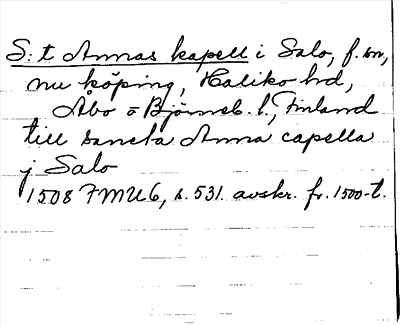 S:t Annas kapell i Salo, f. sn,
nu köping, Haliko hd,
Åbo o Björneb. l., Finland
till sancta Anna capella
j Salo
1508 FMU 6, s. 531. avskr. fr. 1500-t.